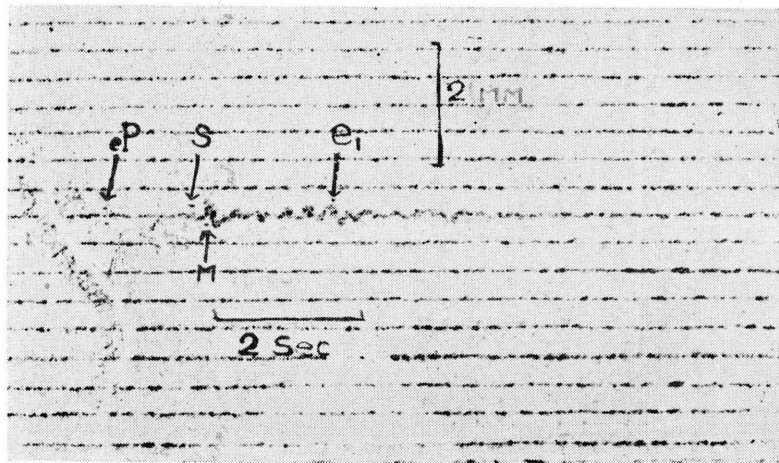 2 MM
eP S e₁
M
2 Sec